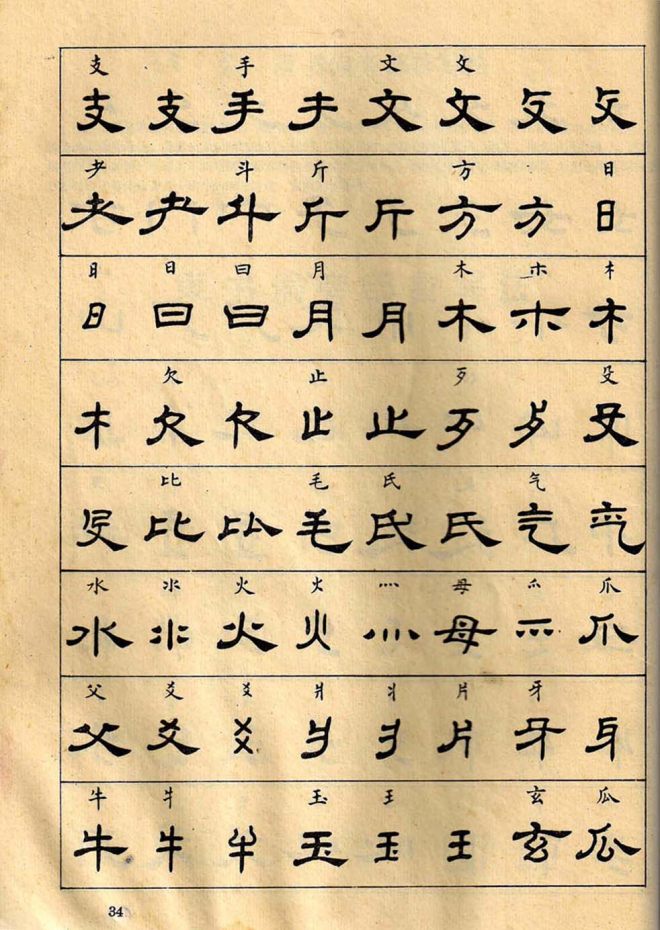 支 手 文 攵
支 支 手 扌 文 攵 攵 攵
耂 斗 斤 方 日
耂 耂 斗 斤 斤 方 方 日
日 日 曰 月 木 朩 木
日 曰 曰 月 月 木 朩 木
欠 止 歹 殳
木 欠 欠 止 止 歹 歹 殳
比 毛 氏 气
殳 比 比 毛 氏 氏 气 气
水 氺 火 火 灬 母 爫 爪
水 氺 火 火 灬 母 爫 爪
父 爻 爻 爿 丬 片 牙
父 爻 爻 爿 丬 片 牙 牙
牛 牜 玉 王 玄 瓜
牛 牜 牛 玉 玉 王 玄 瓜
34